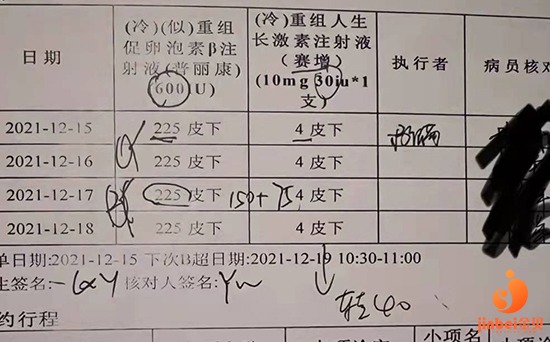 日期 (冷)(似)重组促卵泡素β注射液(普丽康)(600U) (冷)重组人生长激素注射液(赛增)(10mg 30iu*1支) 执行者 病员核对
2021-12-15 225 皮下 4 皮下
2021-12-16 225 皮下 4 皮下
2021-12-17 225 皮下 150+75 4 皮下
2021-12-18 225 皮下 4 皮下
单日期:2021-12-15 下次B超日期:2021-12-19 10:30-11:00
生签名: 核对人签名:
约行程
小项名
jinbei